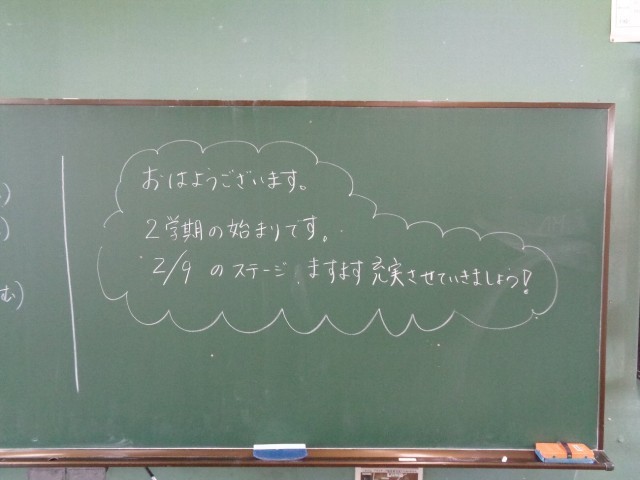 おはようございます。
2学期の始まりです。
2/9のステージ、ますます充実させていきましょう!
む)